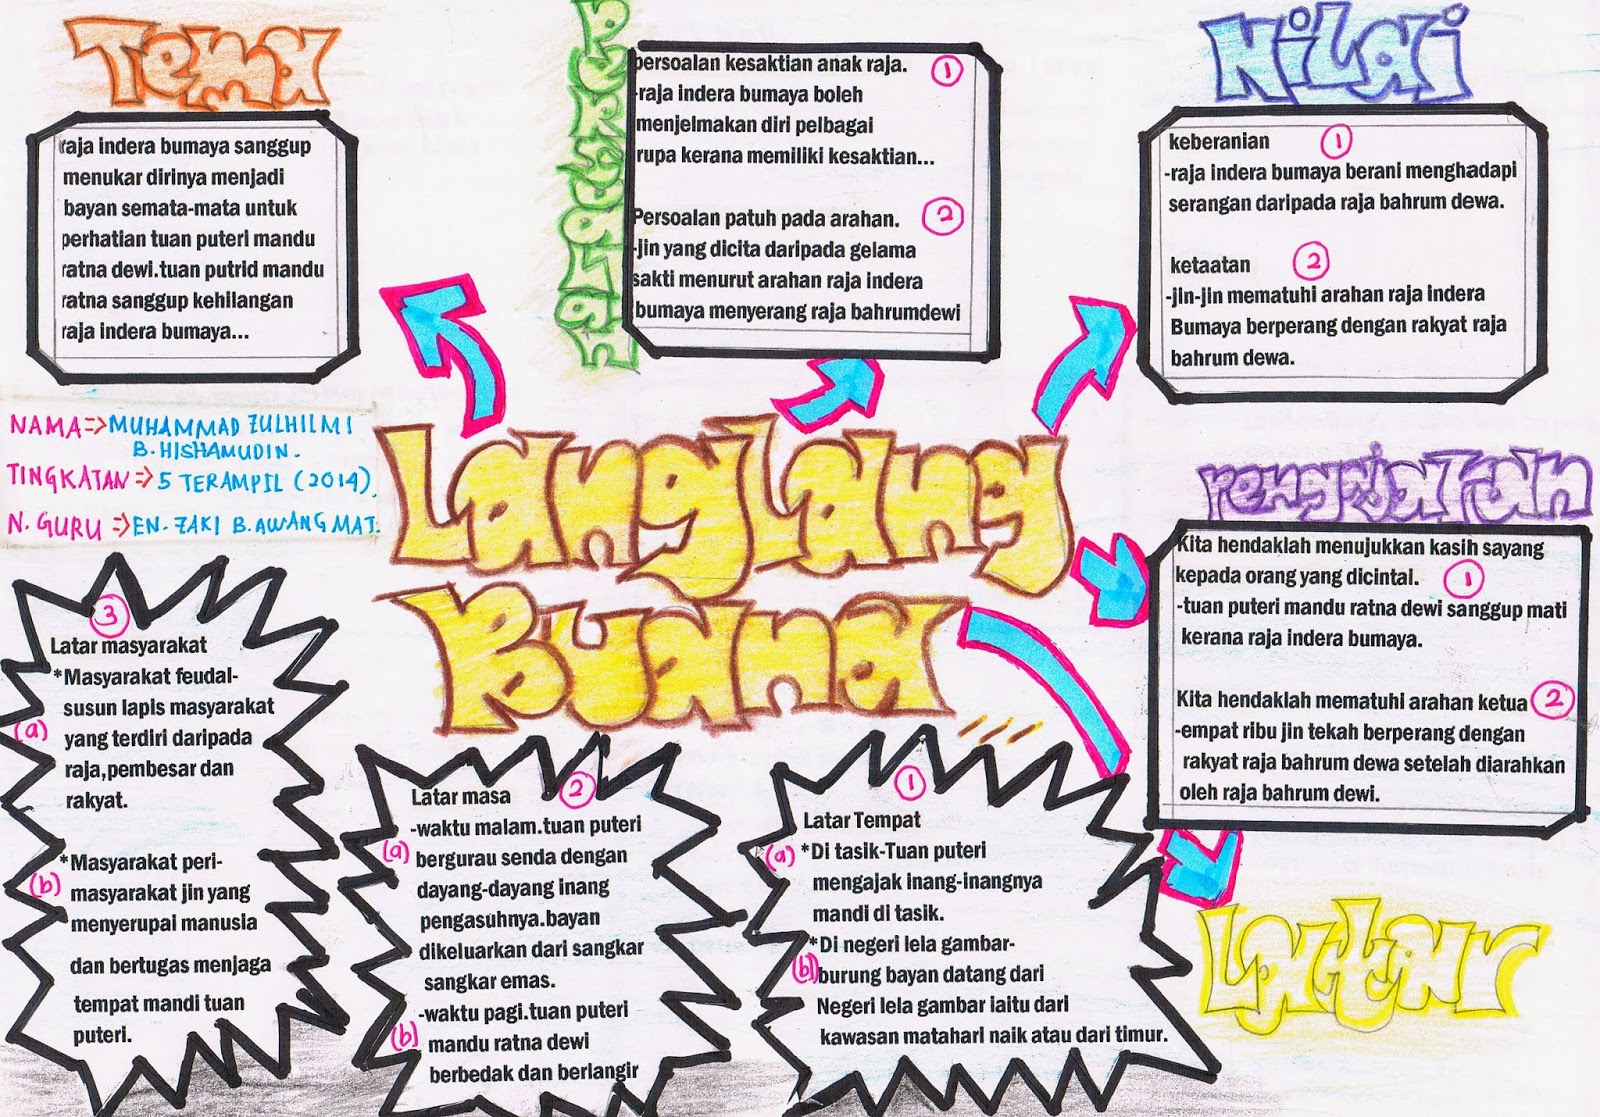 Tema
raja indera bumaya sanggup
menukar dirinya menjadi
bayan semata-mata untuk
perhatian tuan puteri mandu
ratna dewi.tuan putrid mandu
ratna sanggup kehilangan
raja indera bumaya...
persoalan
persoalan kesaktian anak raja. 1
-raja indera bumaya boleh
menjelmakan diri pelbagai
rupa kerana memiliki kesaktian...
Persoalan patuh pada arahan. 2
-jin yang dicita daripada gelama
sakti menurut arahan raja indera
bumaya menyerang raja bahrumdewi
Nilai
keberanian 1
-raja indera bumaya berani menghadapi
serangan daripada raja bahrum dewa.
ketaatan 2
-jin-jin mematuhi arahan raja indera
Bumaya berperang dengan rakyat raja
bahrum dewa.
NAMA => MUHAMMAD ZULHILMI
B. HISHAMUDIN.
TINGKATAN => 5 TERAMPIL (2014).
N. GURU => EN. ZAKI B. AWANG MAT.
LangLang
Buana
pengajaran
Kita hendaklah menujukkan kasih sayang
kepada orang yang dicintal. 1
-tuan puteri mandu ratna dewi sanggup mati
kerana raja indera bumaya.
Kita hendaklah mematuhi arahan ketua 2
-empat ribu jin tekah berperang dengan
rakyat raja bahrum dewa setelah diarahkan
oleh raja bahrum dewi.
Latar
1
Latar Tempat
(a) *Di tasik-Tuan puteri
mengajak inang-inangnya
mandi di tasik.
*Di negeri lela gambar-
(b) burung bayan datang dari
Negeri lela gambar iaitu dari
kawasan matahari naik atau dari timur.
2
Latar masa
-waktu malam.tuan puteri
(a) bergurau senda dengan
dayang-dayang inang
pengasuhnya.bayan
dikeluarkan dari sangkar
sangkar emas.
-waktu pagi.tuan puteri
(b) mandu ratna dewi
berbedak dan berlangir
3
Latar masyarakat
*Masyarakat feudal-
susun lapis masyarakat
(a) yang terdiri daripada
raja,pembesar dan
rakyat.
*Masyarakat peri-
(b) masyarakat jin yang
menyerupai manusia
dan bertugas menjaga
tempat mandi tuan
puteri.